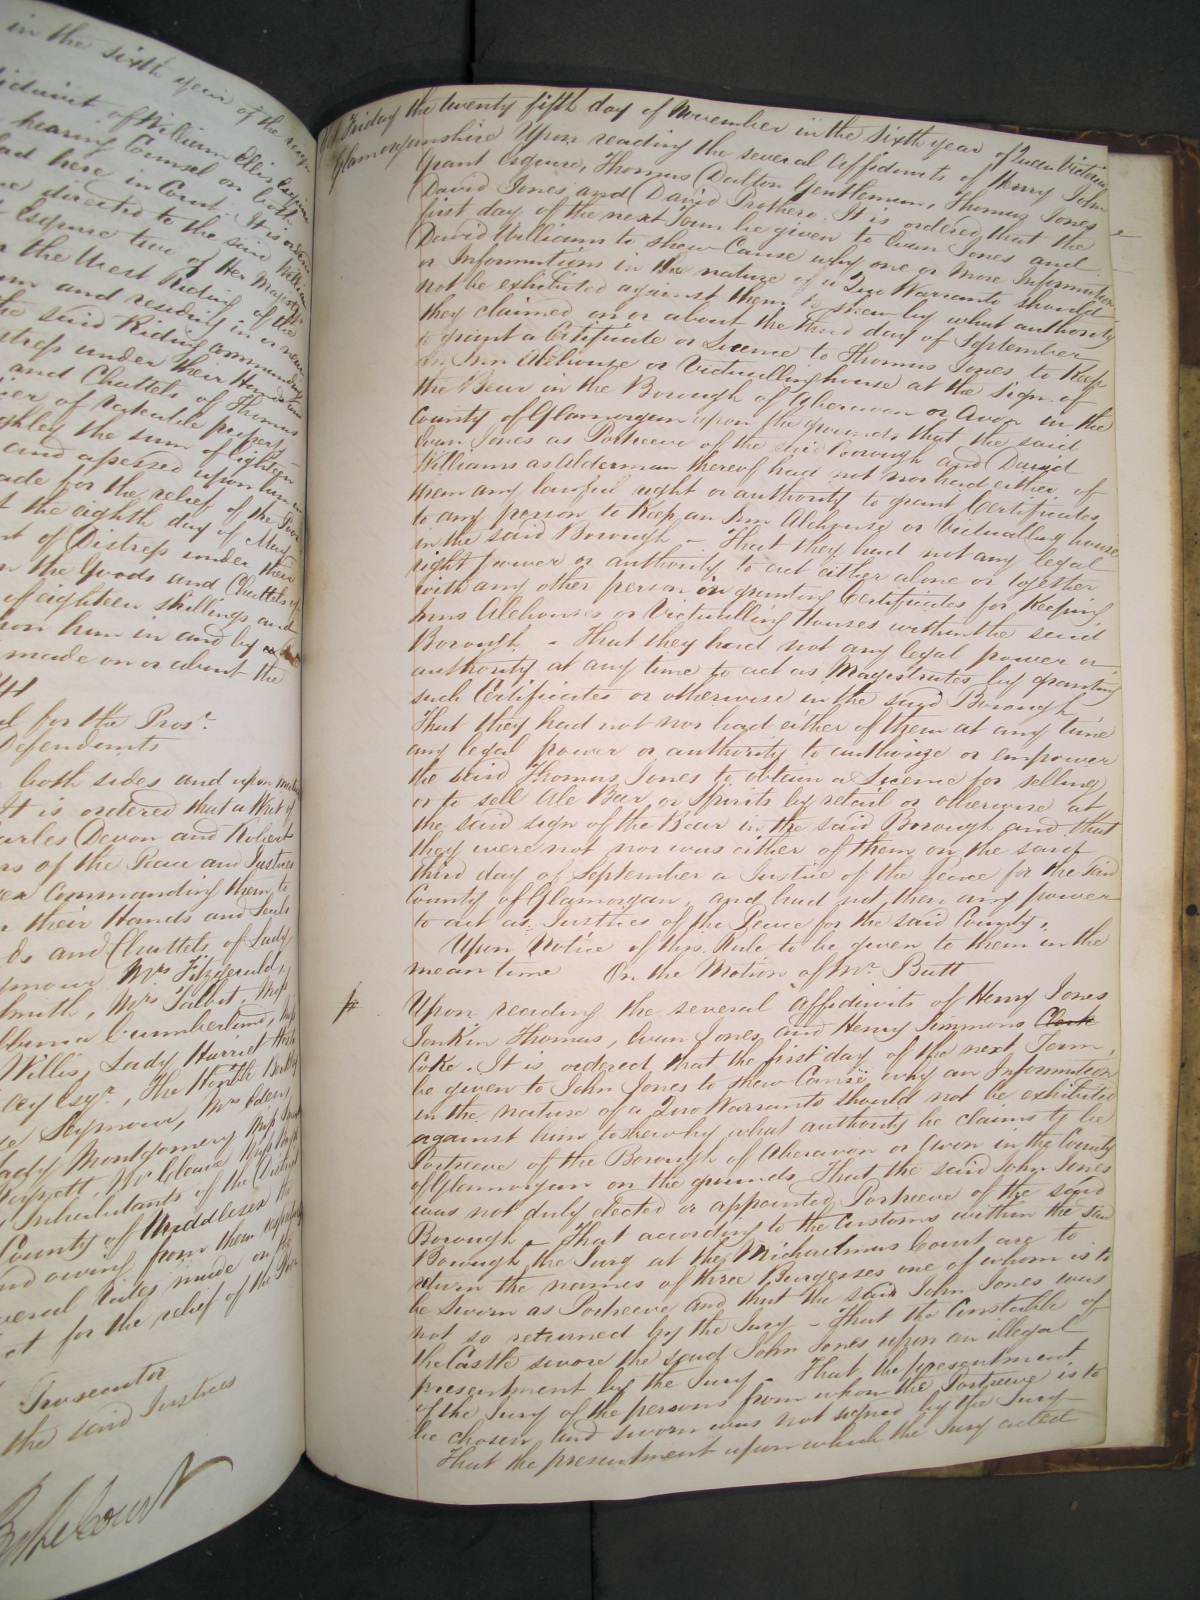 in the sixth year of the reign
of William Ellis Esquire
hearing Counsel on both
had here in Court. It is ordered
directed to the said William
Esquire two of Her Majesty's
the West Riding of the
and residing in or near
the said Riding commanding
under their Hands and
and Chattels of Thomas
of rateable property
the sum of Eighteen
and assessed upon him in
made for the relief of the Poor
the eighth day of May
of Distress under their
the Goods and Chattels of
of eighteen shillings and
upon him in and by
made on or about the
for the Prosr.
Defendants
both sides and upon reading
It is ordered that a Writ of
Charles Devon and Robert
of the Peace and Justices
Commanding them to
their Hands and Seals
and Chattels of Lady
Mrs Fitzgerald,
Smith, Mrs Talbot, Miss
Cumberland, Miss
Willis, Lady Harriet
Esqr., The Honble
Seymour, Mrs Eden,
Lady Montgomery Miss
Mr Cleave
Inhabitants of the
County of Middlesex the
and owing from them
several Rates made on the
for the relief of the Poor
Prosecutor
the said Justices
By the Court
On Friday the twenty fifth day of November in the Sixth year of Queen Victoria
Glamorganshire Upon reading the several Affidavits of Henry John
Grant Esquire, Thomas Dalton Gentleman, Thomas Jones
David Jones and David Prothero. It is ordered that the
first day of the next Term be given to Evan Jones and
David Williams to shew Cause why one or more Information
or Informations in the nature of a Quo Warranto should
not be exhibited against them to shew by what authority
they claimed on or about the third day of September
to grant a Certificate or Licence to Thomas Jones to Keep
an Inn Alehouse or Victuallinghouse at the sign of
the Bear in the Borough of Aberavon or Avon in the
County of Glamorgan upon the grounds that the said
Evan Jones as Portreeve of the said Borough and David
Williams as Alderman thereof had not nor had either of
them any lawful right or authority to grant Certificates
to any person to Keep an Inn Alehouse or Victuallinghouse
in the said Borough – That they had not any legal
right power or authority to act either alone or together
with any other person in granting Certificates for Keeping
Inns Alehouses or Victualling Houses within the said
Borough. – That they had not any legal power or
authority at any time to act as Magistrates by granting
such Certificates or otherwise in the said Borough
That they had not nor had either of them at any time
any legal power or authority to authorize or empower
the said Thomas Jones to obtain a Licence for selling
or to sell Ale Bear or Spirits by retail or otherwise at
the said sign of the Bear in the said Borough and that
they were not nor was either of them on the said
third day of September a Justice of the peace for the said
County of Glamorgan and had not then any power
to act as Justices of the Peace for the said County.
Upon Notice of this Rule to be given to them in the
mean time On the Motion of Mr. Butt
Upon reading the several affidavits of Henry Jones
Jenkin Thomas, Evan Jones and Henry Simmons Clerk
Coke. It is ordered that the first day of the next Term,
be given to John Jones to shew Cause why an Information
in the nature of a Quo Warranto should not be exhibited
against him to shew by what authority he claims to be
Portreeve of the Borough of Aberavon or Avon in the County
of Glamorgan on the grounds That the said John Jones
was not duly elected or appointed Portreeve of the said
Borough – That according to the Customs within the said
Borough the Jury at the Michaelmas Court are to
return the names of three Burgesses one of whom is to
be sworn as Portreeve and that the said John Jones was
not so returned by the Jury – That the Constable of
the Castle swore the said John Jones upon an illegal
presentment by the Jury – That the presentment
of the Jury of the persons from whom the Portreeve is to
be chosen and sworn was not signed by the Jury
That the presentment upon which the Jury acted